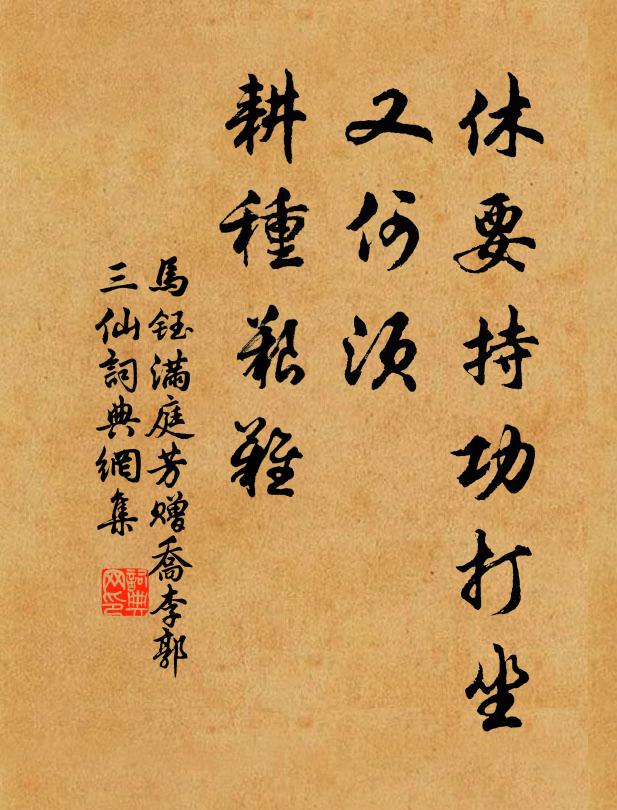 休要持功打坐
又何须
耕種艱難
馬鈺满庭芳赠喬李郭
三仙詞典網集
詞典网印